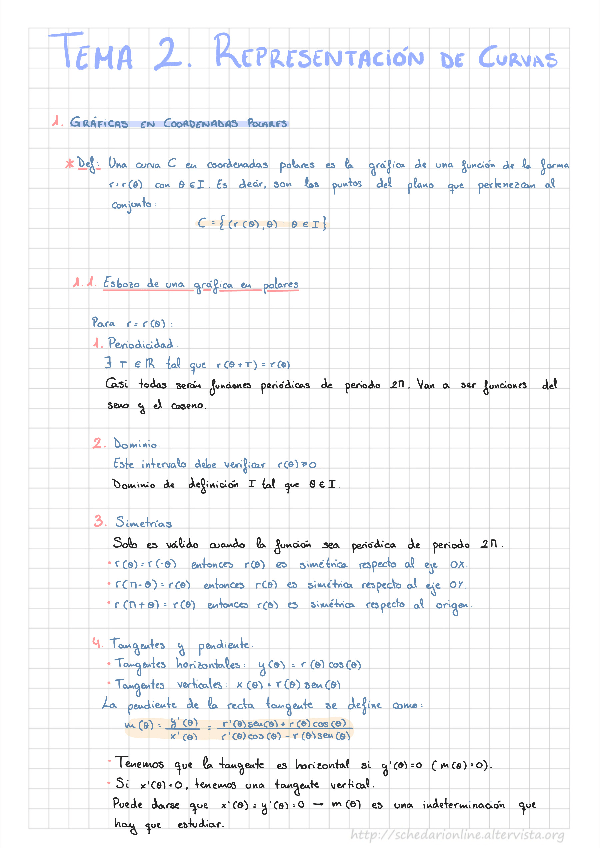 TEMA 2. REPRESENTACIÓN DE CURVAS
1. GRÁFICAS EN COORDENADAS POLARES
* Def: Una curva C en coordenadas polares es la gráfica de una función de la forma
r=r(θ) con θ∈I. Es decir, son los puntos del plano que pertenezcan al
conjunto:
C = {(r(θ),θ) θ∈I}
1.1. Esbozo de una gráfica en polares
Para r=r(θ):
1. Periodicidad.
∃ T∈ℝ tal que r(θ+T)=r(θ)
Casi todas serán funciones periódicas de periodo 2π. Van a ser funciones del
seno y el coseno.
2. Dominio
Este intervalo debe verificar r(θ)≥0
Dominio de definición I tal que θ∈I.
3. Simetrías
Solo es válido cuando la función sea periódica de periodo 2π.
· r(θ)=r(-θ) entonces r(θ) es simétrica respecto al eje OX.
· r(π-θ)=r(θ) entonces r(θ) es simétrica respecto al eje OY.
· r(π+θ)=r(θ) entonces r(θ) es simétrica respecto al origen.
4. Tangentes y pendiente.
· Tangentes horizontales: y(θ)=r(θ)cos(θ)
· Tangentes verticales: x(θ)=r(θ)sen(θ)
La pendiente de la recta tangente se define como:
m(θ) = y'(θ)/x'(θ) = r'(θ)sen(θ)+r(θ)cos(θ)/r'(θ)cos(θ)-r(θ)sen(θ)
· Tenemos que la tangente es horizontal si y'(θ)=0 (m(θ)=0).
· Si x'(θ)=0, tenemos una tangente vertical.
Puede darse que x'(θ)=y'(θ)=0 → m(θ) es una indeterminación que
hay que estudiar.
http://schedarionline.altervista.org